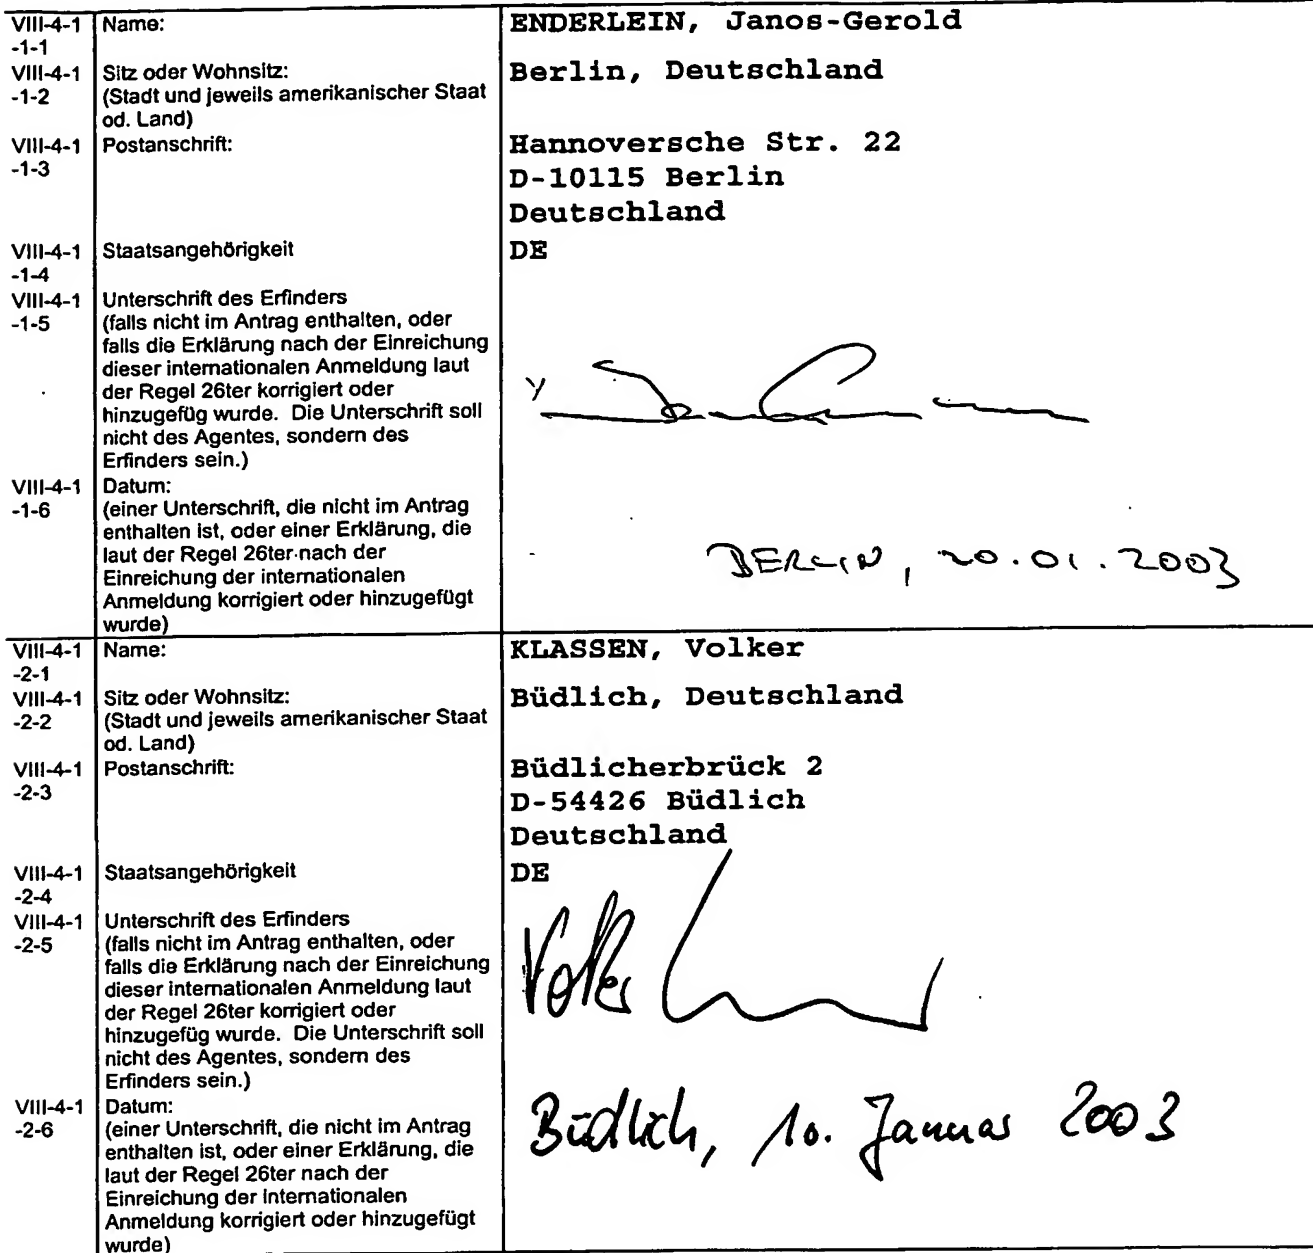 VIII-4-1 Name: ENDERLEIN, Janos-Gerold
-1-1
VIII-4-1 Sitz oder Wohnsitz: Berlin, Deutschland
-1-2 (Stadt und jeweils amerikanischer Staat
od. Land)
VIII-4-1 Postanschrift: Hannoversche Str. 22
-1-3 D-10115 Berlin
Deutschland
VIII-4-1 Staatsangehörigkeit DE
-1-4
VIII-4-1 Unterschrift des Erfinders
-1-5 (falls nicht im Antrag enthalten, oder
falls die Erklärung nach der Einreichung
dieser internationalen Anmeldung laut
der Regel 26ter korrigiert oder
hinzugefüg wurde. Die Unterschrift soll
nicht des Agentes, sondern des
Erfinders sein.)
VIII-4-1 Datum:
-1-6 (einer Unterschrift, die nicht im Antrag
enthalten ist, oder einer Erklärung, die
laut der Regel 26ter nach der
Einreichung der internationalen
Anmeldung korrigiert oder hinzugefügt
wurde)
BERLIN, 20.01.2003
VIII-4-1 Name: KLASSEN, Volker
-2-1
VIII-4-1 Sitz oder Wohnsitz: Büdlich, Deutschland
-2-2 (Stadt und jeweils amerikanischer Staat
od. Land)
VIII-4-1 Postanschrift: Büdlicherbrück 2
-2-3 D-54426 Büdlich
Deutschland
VIII-4-1 Staatsangehörigkeit DE
-2-4
VIII-4-1 Unterschrift des Erfinders
-2-5 (falls nicht im Antrag enthalten, oder
falls die Erklärung nach der Einreichung
dieser internationalen Anmeldung laut
der Regel 26ter korrigiert oder
hinzugefüg wurde. Die Unterschrift soll
nicht des Agentes, sondern des
Erfinders sein.)
Volker
VIII-4-1 Datum:
-2-6 (einer Unterschrift, die nicht im Antrag
enthalten ist, oder einer Erklärung, die
laut der Regel 26ter nach der
Einreichung der internationalen
Anmeldung korrigiert oder hinzugefügt
wurde)
Büdlich, 10. Januar 2003